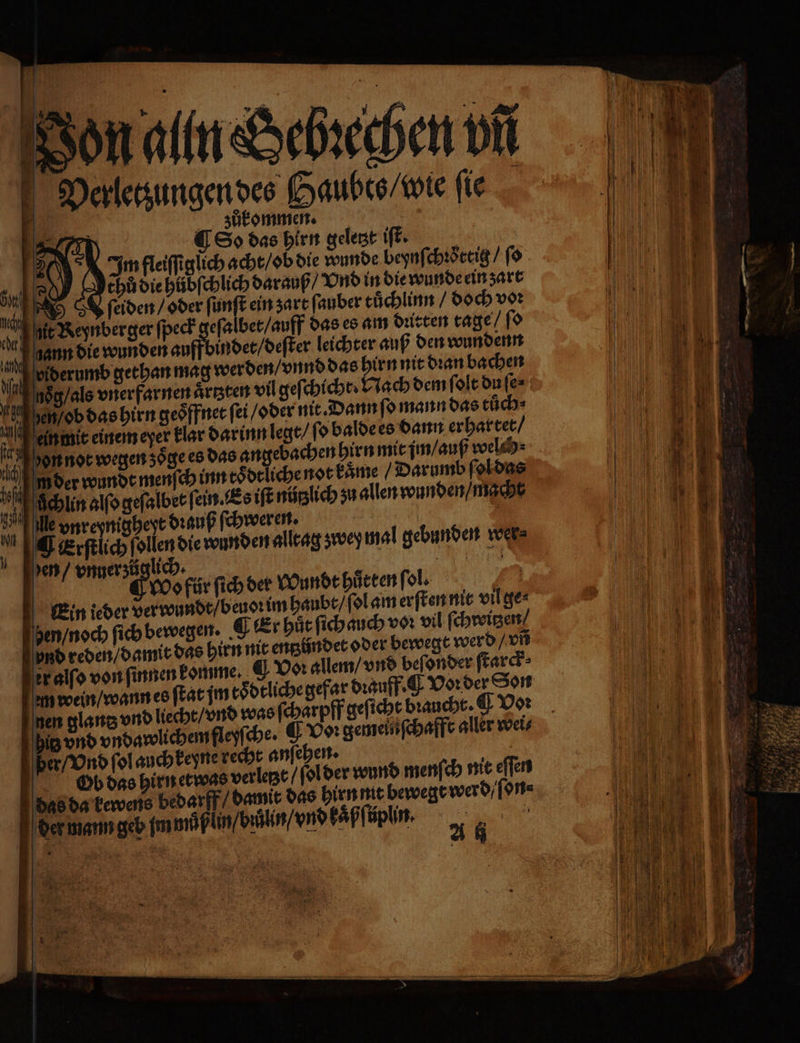 Von alln Gebrechen vñ
Verletzungen des Haubts/wie sie
zůkommen.
¶ So das hirn geletzt ist.
NIm fleissiglich acht/ob die wunde beynschröttig/ so
thů die hübschlich darauß/ Vnd in die wunde ein zart
seiden/oder sunst ein zart sauber tůchlinn / doch vor
mit Reynberger speck gesalbet/auff das es am dritten tage/ so
mann die wunden auffbindet/dester leichter auß den wundenn
widerumb gethan mag werden/vnnd das hirn nit dran bachen
mög/als vnerfarnen ärtzten vil geschicht. Nach dem solt du se-
hen/ob das hirn geöffnet sei/oder nit. Dann so mann das tůch-
lein mit einem eyer klar darinn legt/ so balde es dann erhartet/
von not wegen zöge es das angebachen hirn mit jm/auß welch-
em der wundt mensch inn tödtliche not käme / Darumb sol das
tůchlin also gesalbet sein. Es ist nützlich zu allen wunden/macht
alle vnreynigheyt drauß schweren.
¶ Erstlich sollen die wunden alltag zwey mal gebunden wer-
den/ vnuerzüglich.
¶ Wo für sich der Wundt hütten sol.
Ein ieder verwundt/beuor im haubt/sol am ersten nit vil ge-
hen/noch sich bewegen. ¶ Er hůt sich auch vor vil schwitzen/
vnd reden/damit das hirn nit entzündet oder bewegt werd/vñ
er also von sinnen komme. ¶ Vor allem/vnd besonder starck-
em wein/wann es stat jm tödtliche gefar drauff. ¶ Vor der Son
nen glantz vnd liecht/vnd was scharpff gesicht braucht. ¶ Vor
hitz vnd vndawlichem fleysche. ¶ Vor gemeinschafft aller wei-
ber/Vnd sol auch keyne recht ansehen.
Ob das hirn etwas verletzt/ sol der wund mensch nit essen
das da kewens bedarff/damit das hirn nit bewegt werd/son-
der mann geb jm můßlin/brülin/vnd käßsüplin.
A ij